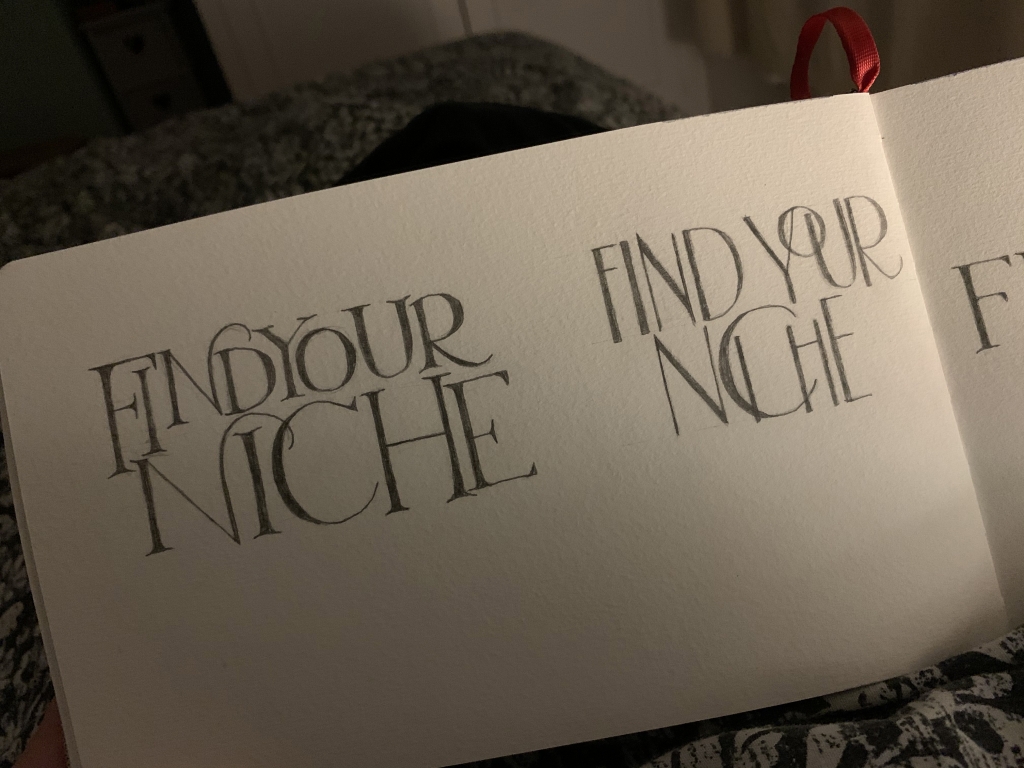 FIND YOUR
NICHE
FIND YOUR
NICHE
F